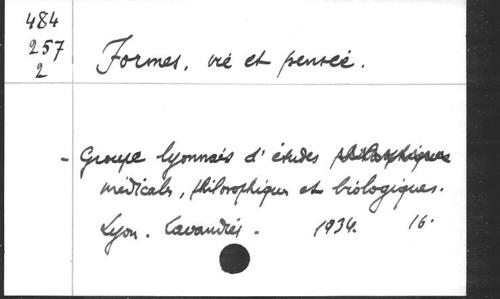 484
257
2
Formes, vie et pensée.
- Groupe lyonnais d'études philosophiques
médicales, philosophiques et biologiques.
Lyon. Lavandier. 1934. 16.